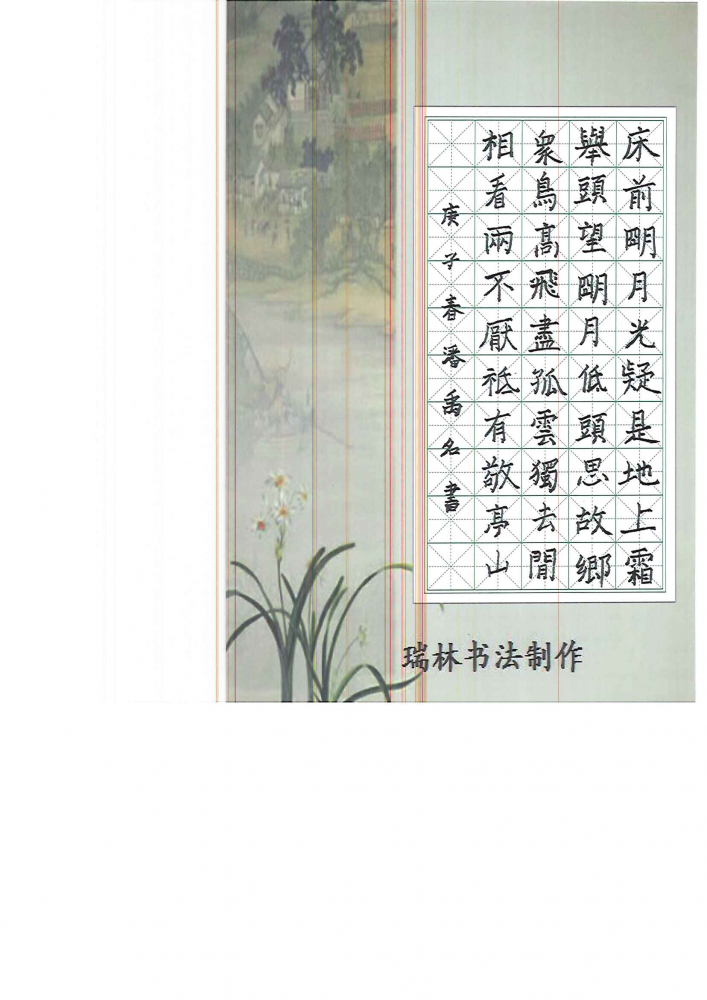 床前朙月光疑是地上霜
舉頭望朙月低頭思故鄉
衆鳥高飛盡孤雲獨去閒
相看兩不厭祗有敬亭山
庚子春潘禹名書
瑞林书法制作